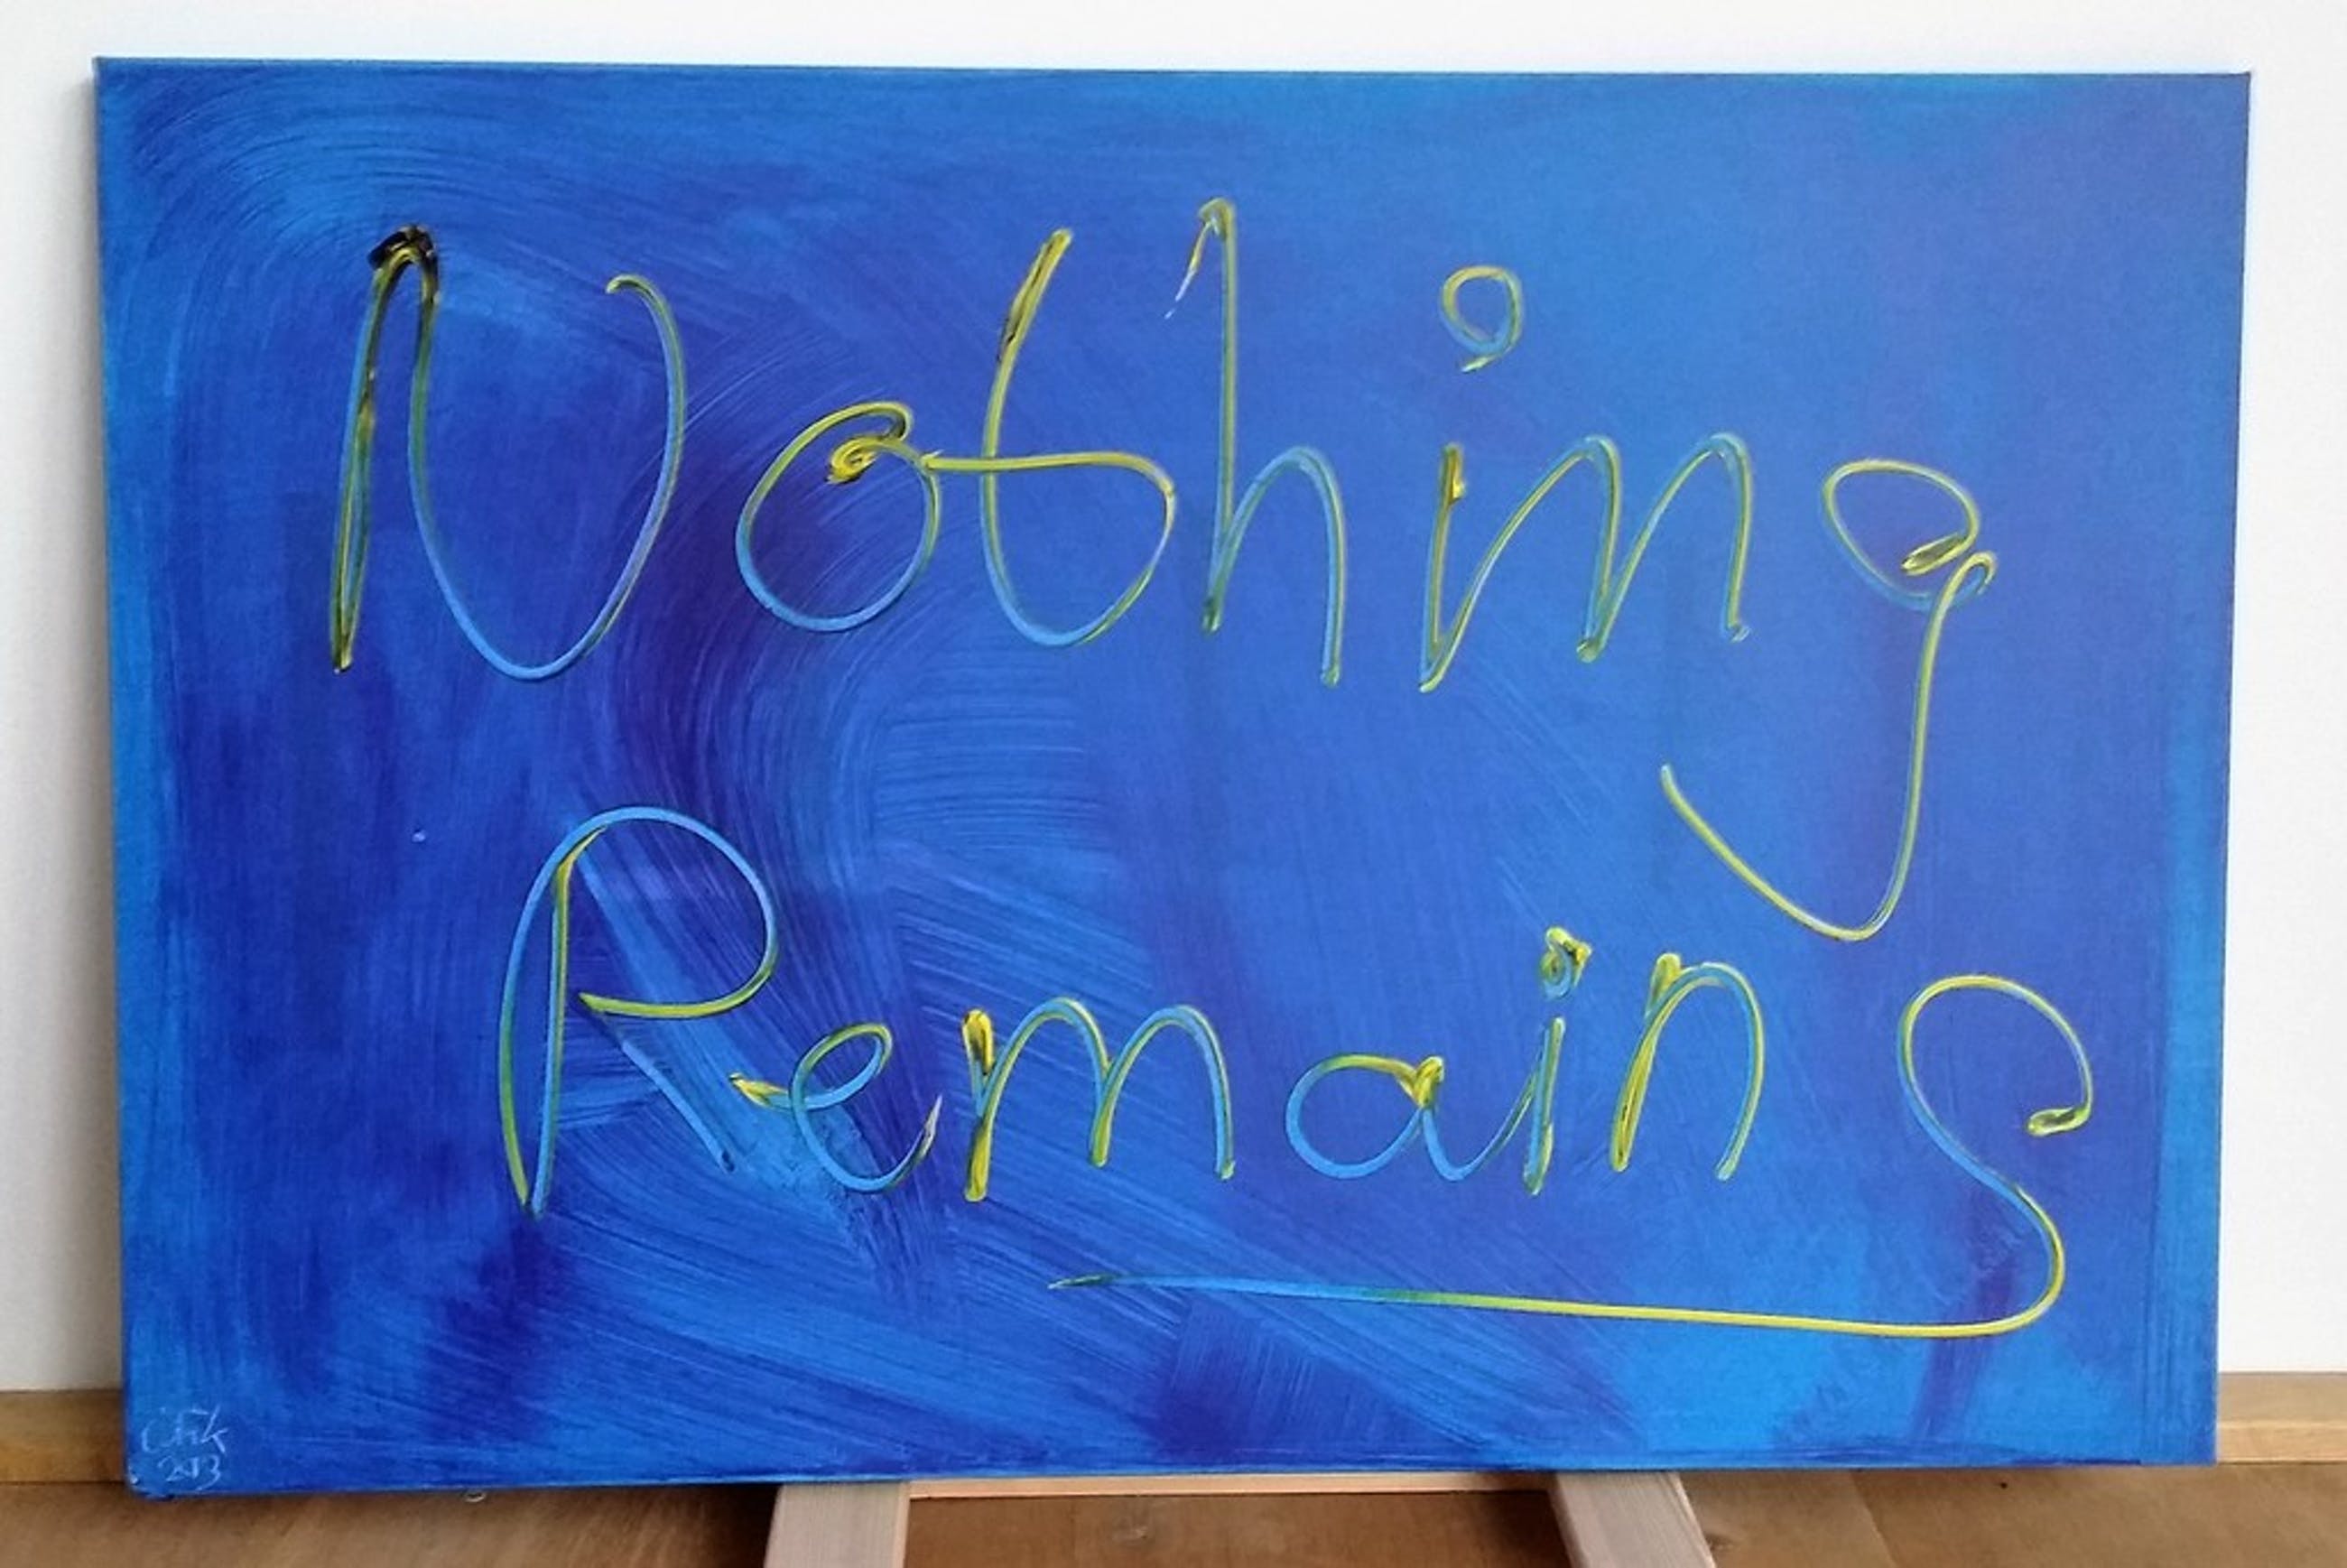 Nothing
Remains
2013